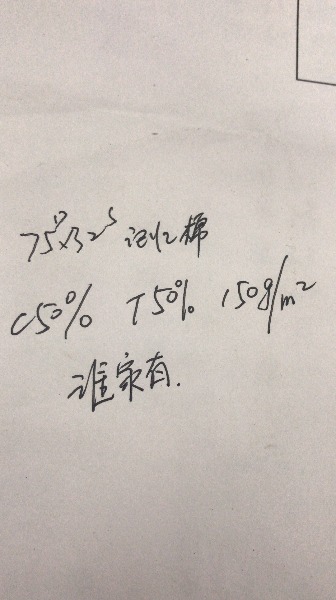 75D×32S 记忆棉
C50% T50% 150g/m²
谁家有.